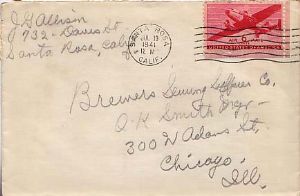 J H Allison
732 - Davis St
Santa Rosa, Calif
SANTA ROSA
1941
12 M
CALIF.
AIR MAIL
6¢
UNITED STATES OF AMERICA
Brewers
Co.
O.K Smith Mgr.
300 N Adams St.
Chicago.
Ill.